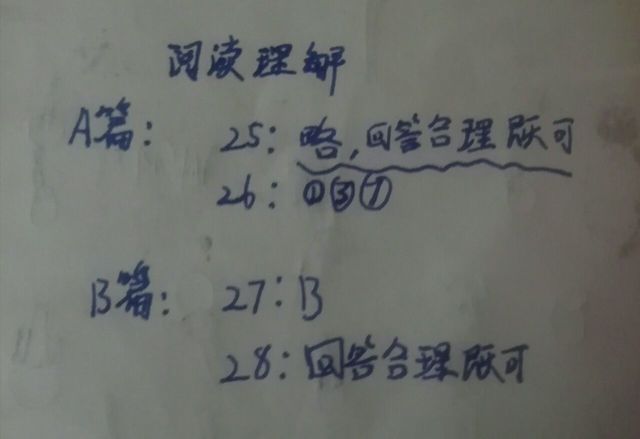 阅读理解
A篇: 25: 略,回答合理既可
26: ①③⑦
B篇: 27: B
28: 回答合理既可